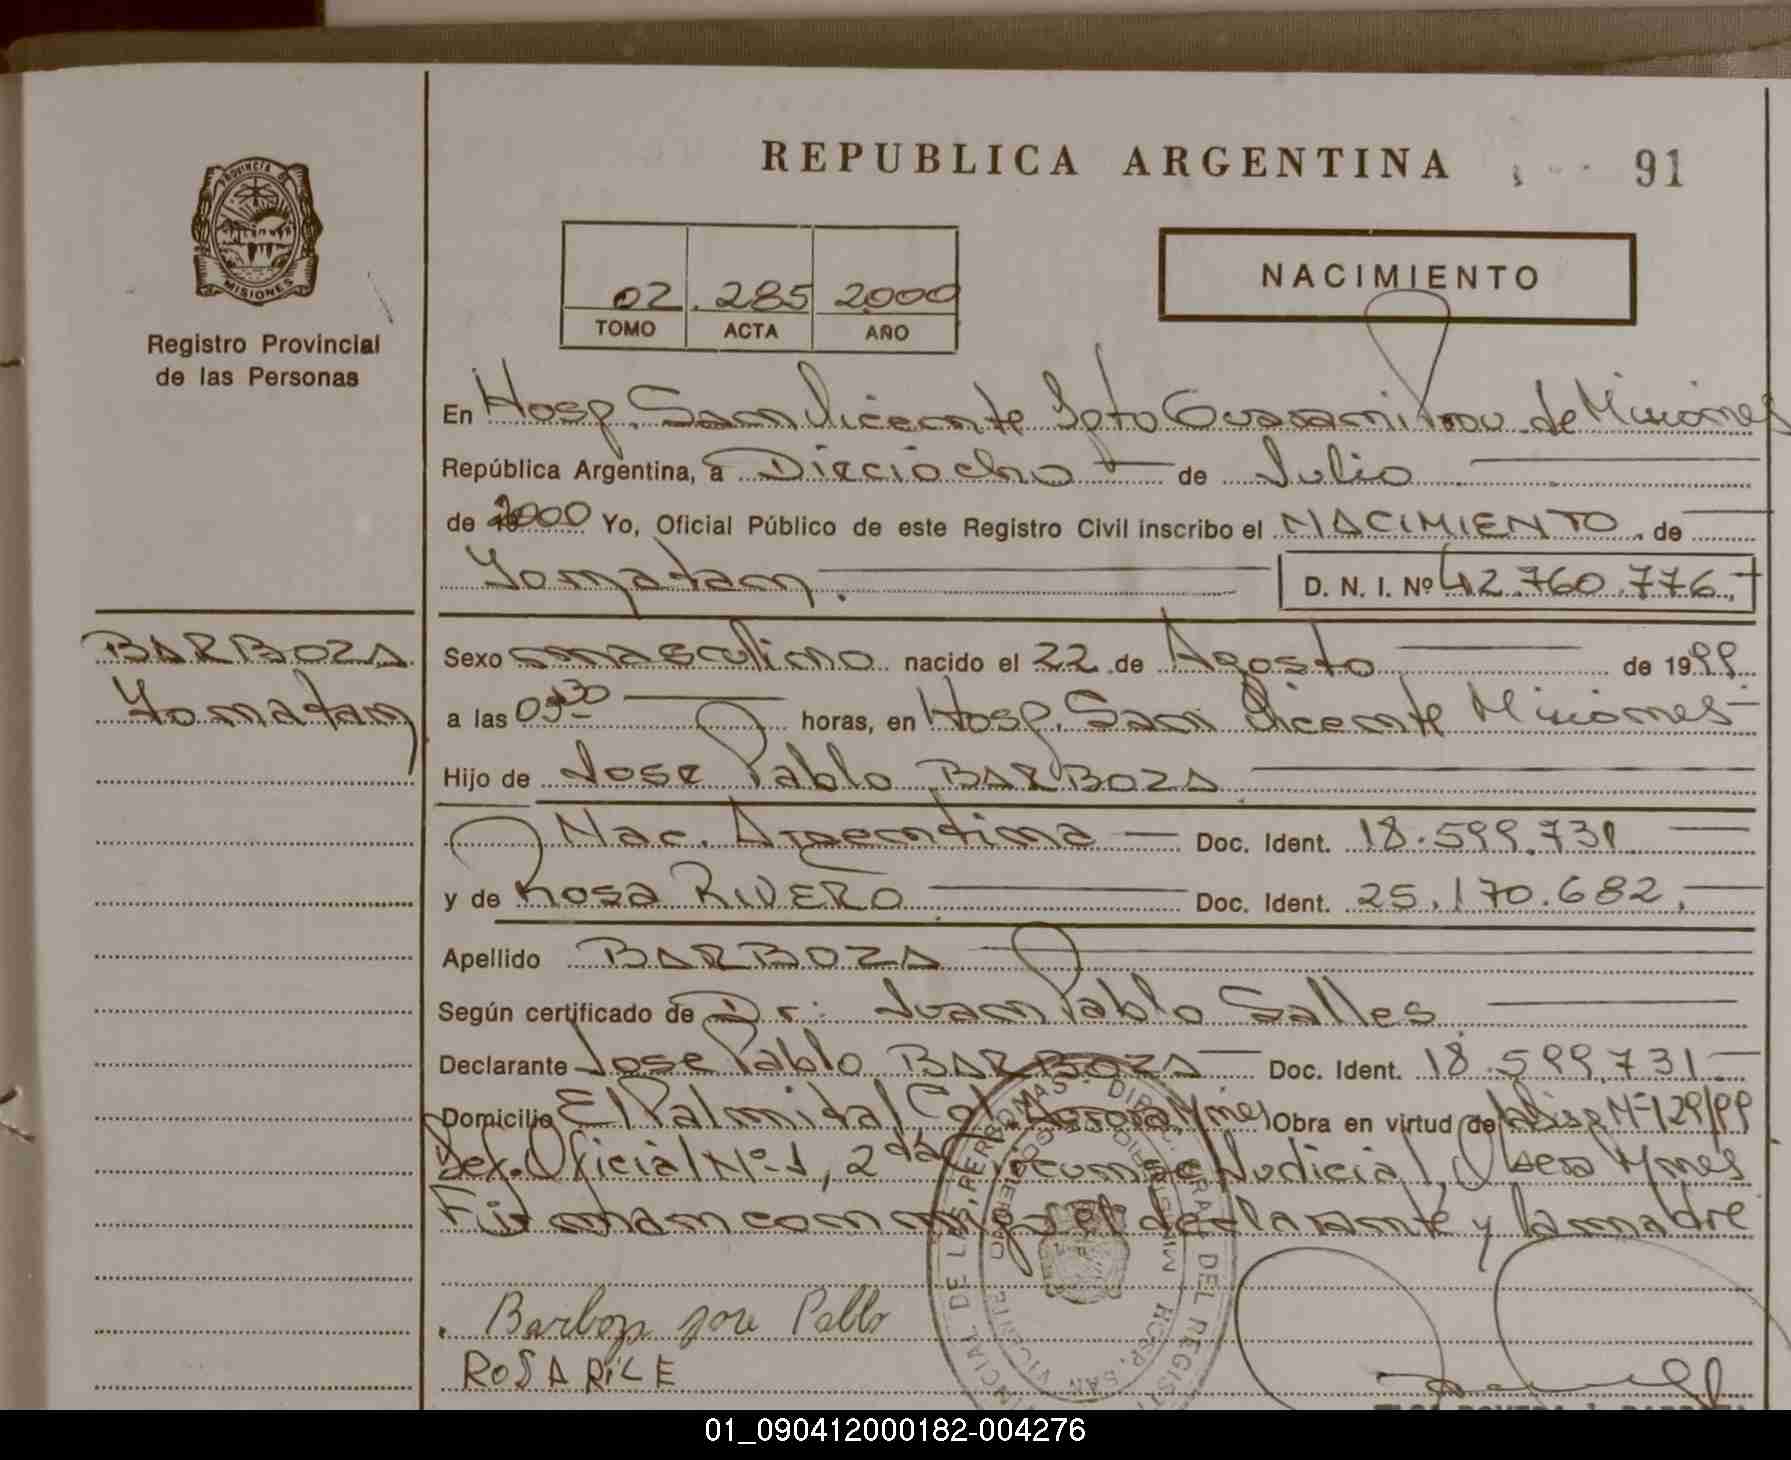 REPUBLICA ARGENTINA 91
PROVINCIA DE
MISIONES
Registro Provincial
de las Personas
02 285 2000
TOMO ACTA AÑO
NACIMIENTO
En Hosp. San Vicente Dpto Guarani Prov. de Misiones
República Argentina, a Dieciocho de Julio
de 2000 Yo, Oficial Público de este Registro Civil inscribo el NACIMIENTO de
Yonatan D. N. I. Nº 42.760.776
BARBOZA
Yonatan
Sexo masculino nacido el 22 de Agosto de 1999
a las 03:30 horas, en Hosp. San Vicente Misiones
Hijo de Jose Pablo BARBOZA
Nac. Argentina Doc. Ident. 18.599.731
y de Rosa RIVERO Doc. Ident. 25.170.682
Apellido BARBOZA
Según certificado de Dr: Juan Pablo Salles
Declarante Jose Pablo BARBOZA Doc. Ident. 18.599.731
Domicilio El Palmital, Col. Aurora, Mnes Obra en virtud de Nº 129/99
Def. Oficial Nº 1, 2da Circunsc Judicial, Obera Mnes
Firman conmigo el declarante y la madre
Barboza jose Pablo
ROSA
HOSP. SAN VICENTE
01_090412000182-004276